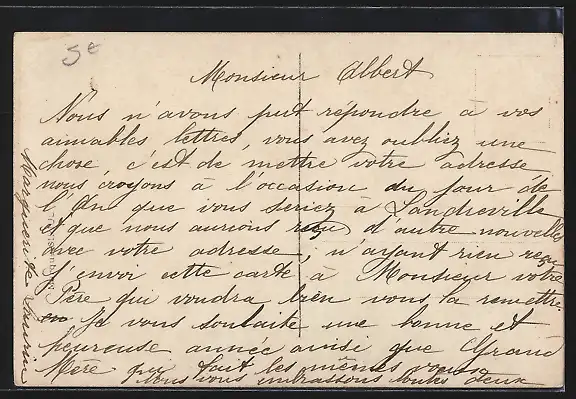 5e
Monsieur Albert
Nous n'avons put répondre à vos
aimables lettres, vous avez oubliez une
chose, c'est de mettre votre adresse
nous croyons à l'occasion du jour de
l'An que vous seriez à Landreville
et que nous aurions reçu d'autre nouvelles
avec votre adresse, n'ayant rien reçu
J'envoi cette carte à Monsieur votre
Père qui voudra bien vous la remettre.
Je vous souhaite une bonne et
heureuse année ainsi que Grand
Mère qui fait les mêmes voeux
nous vous embrassons toutes deux
Marguerite